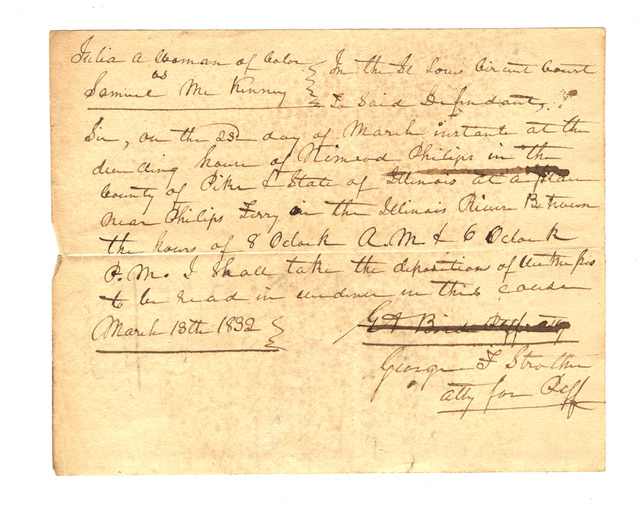 Julia a woman of Color } In the St Louis Circuit Court
vs
Samuel Mc Kinney } To Said Defendant,
Sir, on the 23d day of March instant at the
dwelling house of Nimrod Philips in the
County of Pike & State of Illinois at a place
near Philips Ferry on the Illinois River Between
the hours of 8 Oclock A.M & 6 Oclock
P.M. I shall take the depositions of Witnesses
to be read in evidence in this cause
March 13th 1832 }
George F Strother
atty for Plff